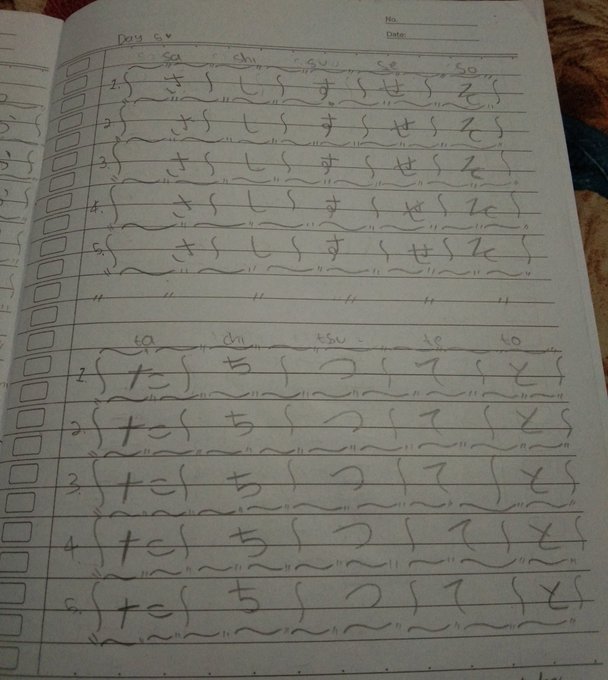 No.
Date:
Day 5
sa shi su se so
1. さ し す せ そ
2. さ し す せ そ
3. さ し す せ そ
4. さ し す せ そ
5. さ し す せ そ
ta chi tsu te to
1. た ち つ て と
2. た ち つ て と
3. た ち つ て と
4. た ち つ て と
5. た ち つ て と